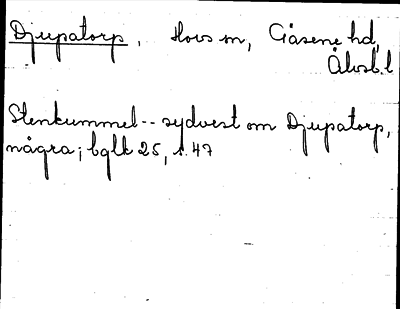 Djupatorp, Hovs sn, Gäsene hd,
Älvsb.l
Stenkummel-- sydvest om Djupatorp,
några; bglk 25, s. 47